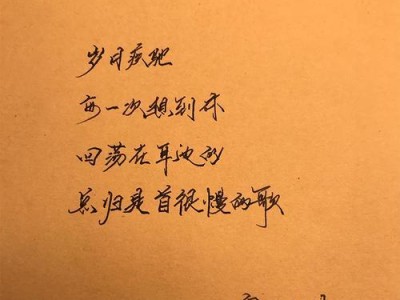 岁月疾驰
每一次想到你
回荡在耳边的
总归是首很慢的歌